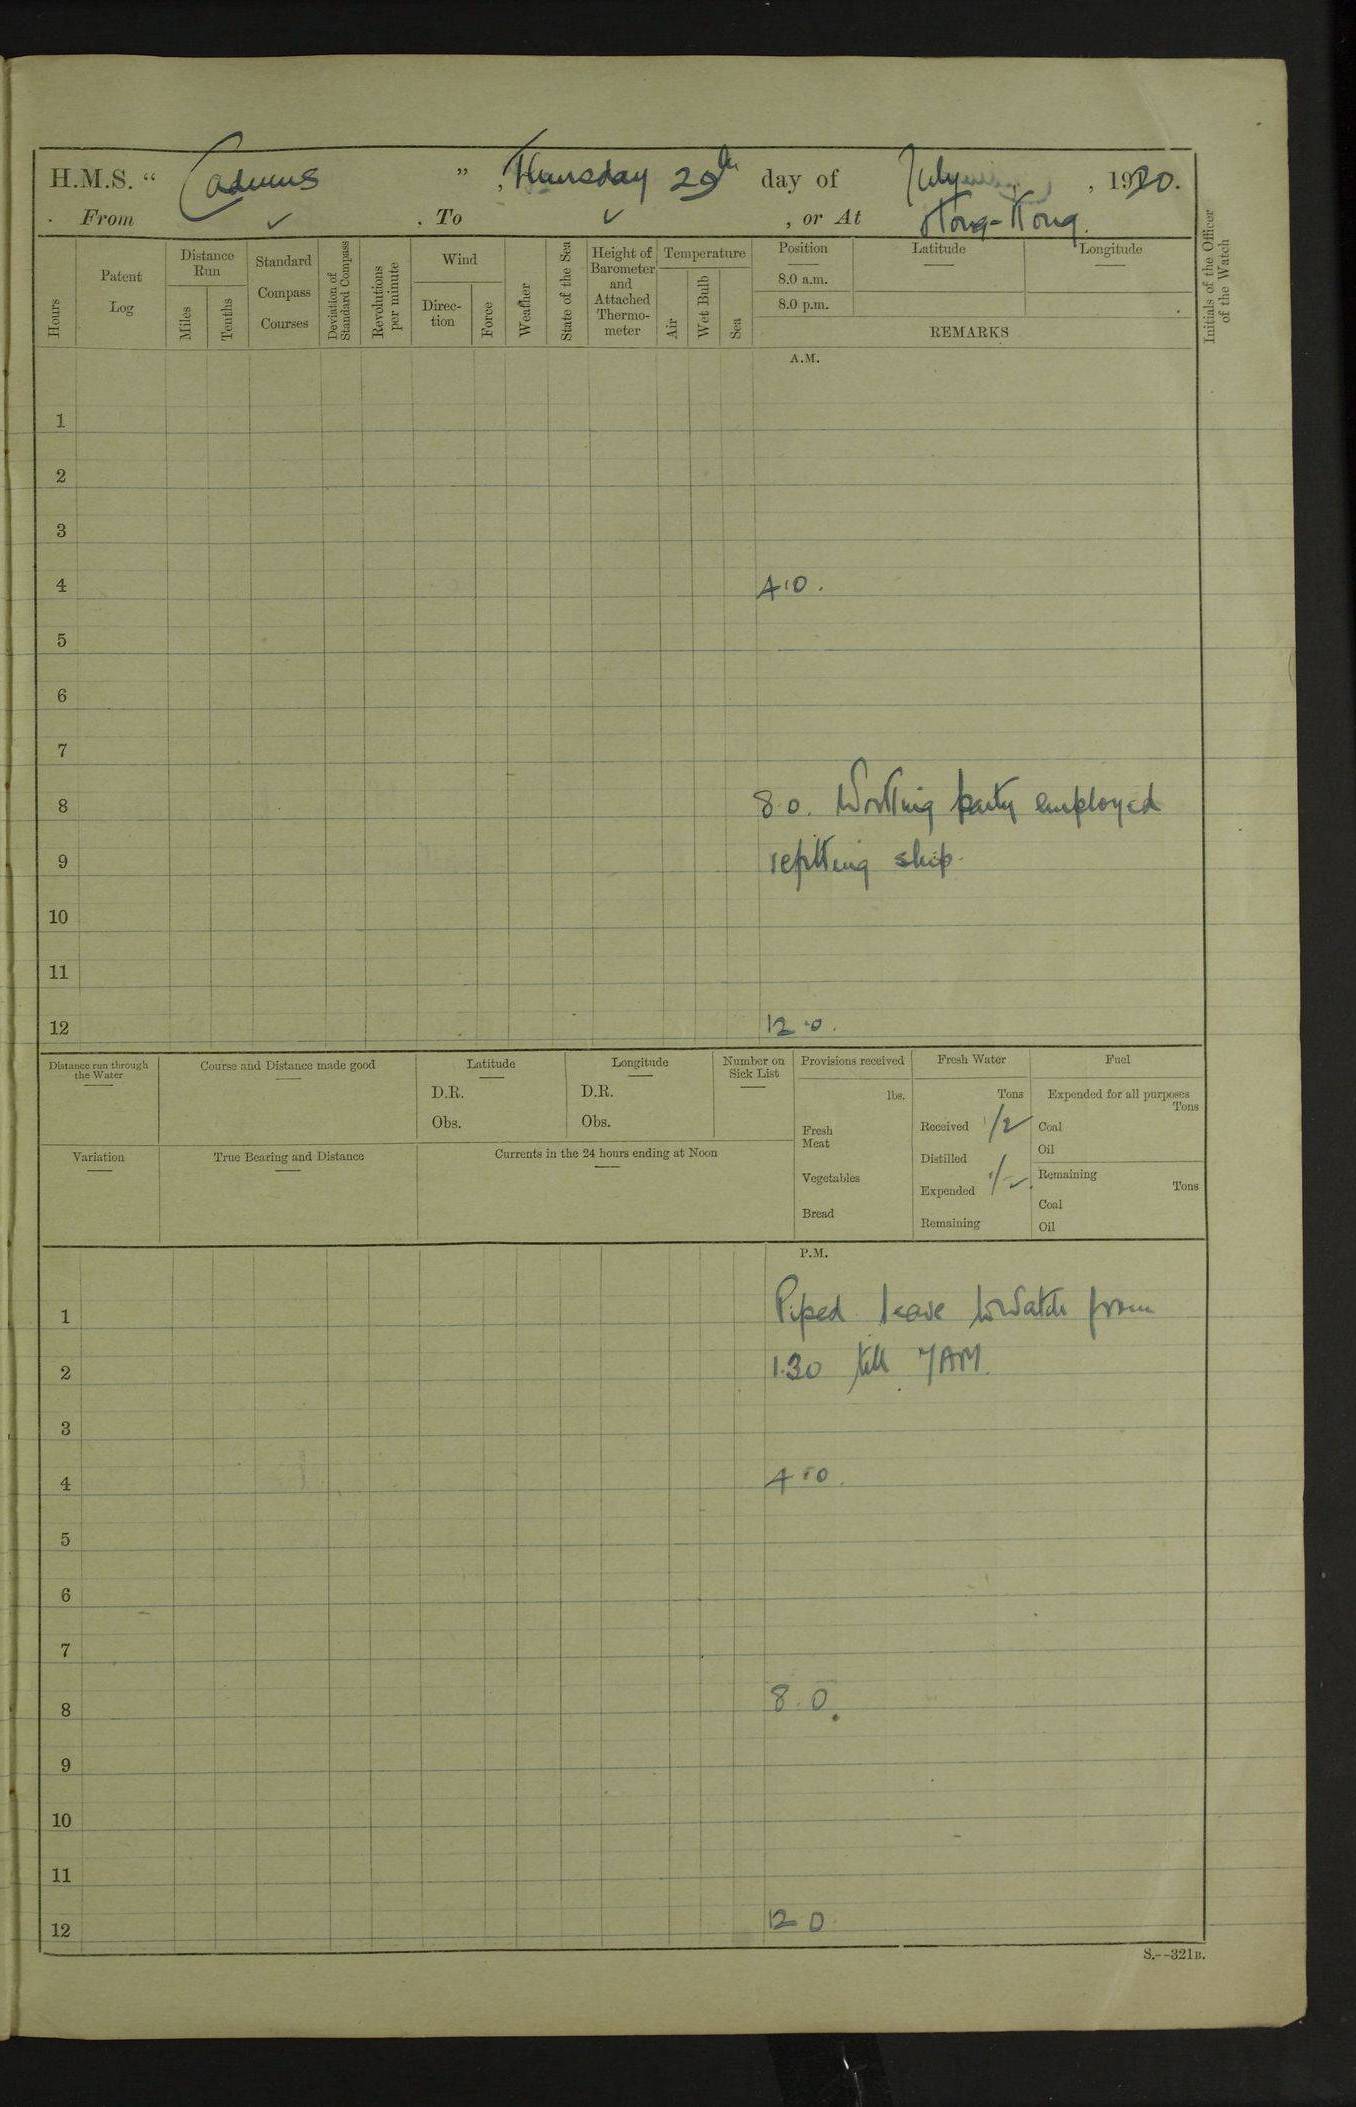 H.M.S. “ Cadmus ” , Thursday 29th day of July , 1920.
From ✓ . To ✓ , or At Hong-Kong.
Hours
Patent
Log
Distance
Run
Miles
Tenths
Standard
Compass
Courses
Deviation of
Standard Compass
Revolutions
per minute
Wind
Direc-
tion
Force
Weather
State of the Sea
Height of
Barometer
and
Attached
Thermo-
meter
Temperature
Air
Wet Bulb
Sea
Position
Latitude
Longitude
8.0 a.m.
8.0 p.m.
REMARKS
Initials of the Officer
of the Watch
A.M.
1
2
3
4 4.0.
5
6
7
8 8.0. Working party employed
9 refitting ship.
10
11
12 12.0.
Distance run through
the Water
Course and Distance made good
Latitude
D.R.
Obs.
Longitude
D.R.
Obs.
Number on
Sick List
Provisions received
lbs.
Fresh
Meat
Vegetables
Bread
Fresh Water
Tons
Received 1/2
Distilled
Expended 1/2.
Remaining
Fuel
Expended for all purposes
Tons
Coal
Oil
Remaining
Tons
Coal
Oil
Variation
True Bearing and Distance
Currents in the 24 hours ending at Noon
P.M.
1 Piped leave to Watch from
2 1.30 till 7AM.
3
4 4.0.
5
6
7
8 8.0.
9
10
11
12 12 0
S.--321B.